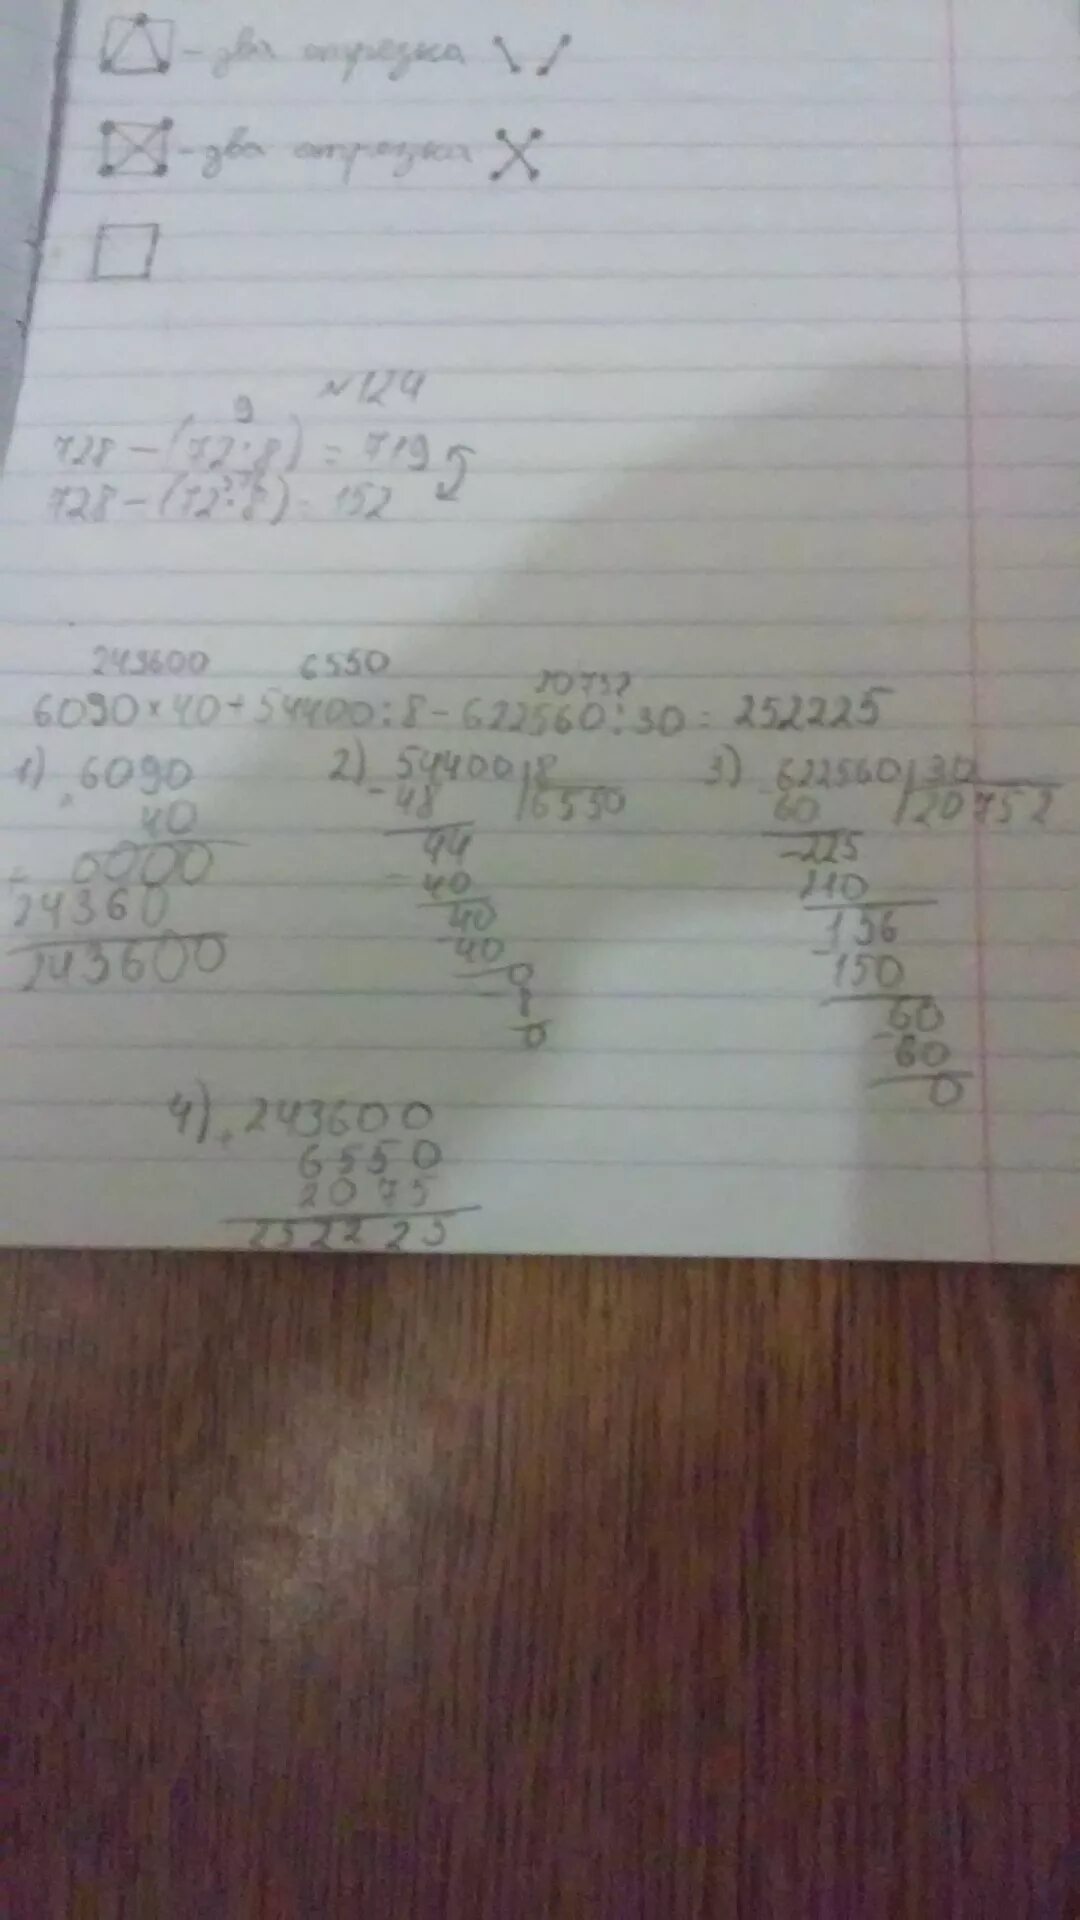 - два отрезка
- два отрезка
№124
9
728 - (72:8) = 719
576
728 - (72·8) = 152
243600 6550 20752
6090 × 40 + 54400 : 8 - 622560 : 30 = 252225
1) 6090
× 40
0000
24360
243600
2) 54400 | 8
- 48 | 6550
44
- 40
40
- 40
0
0
3) 622560 | 30
- 60 | 20752
- 225
210
- 156
150
60
- 60
0
4) + 243600
6550
2075
252225